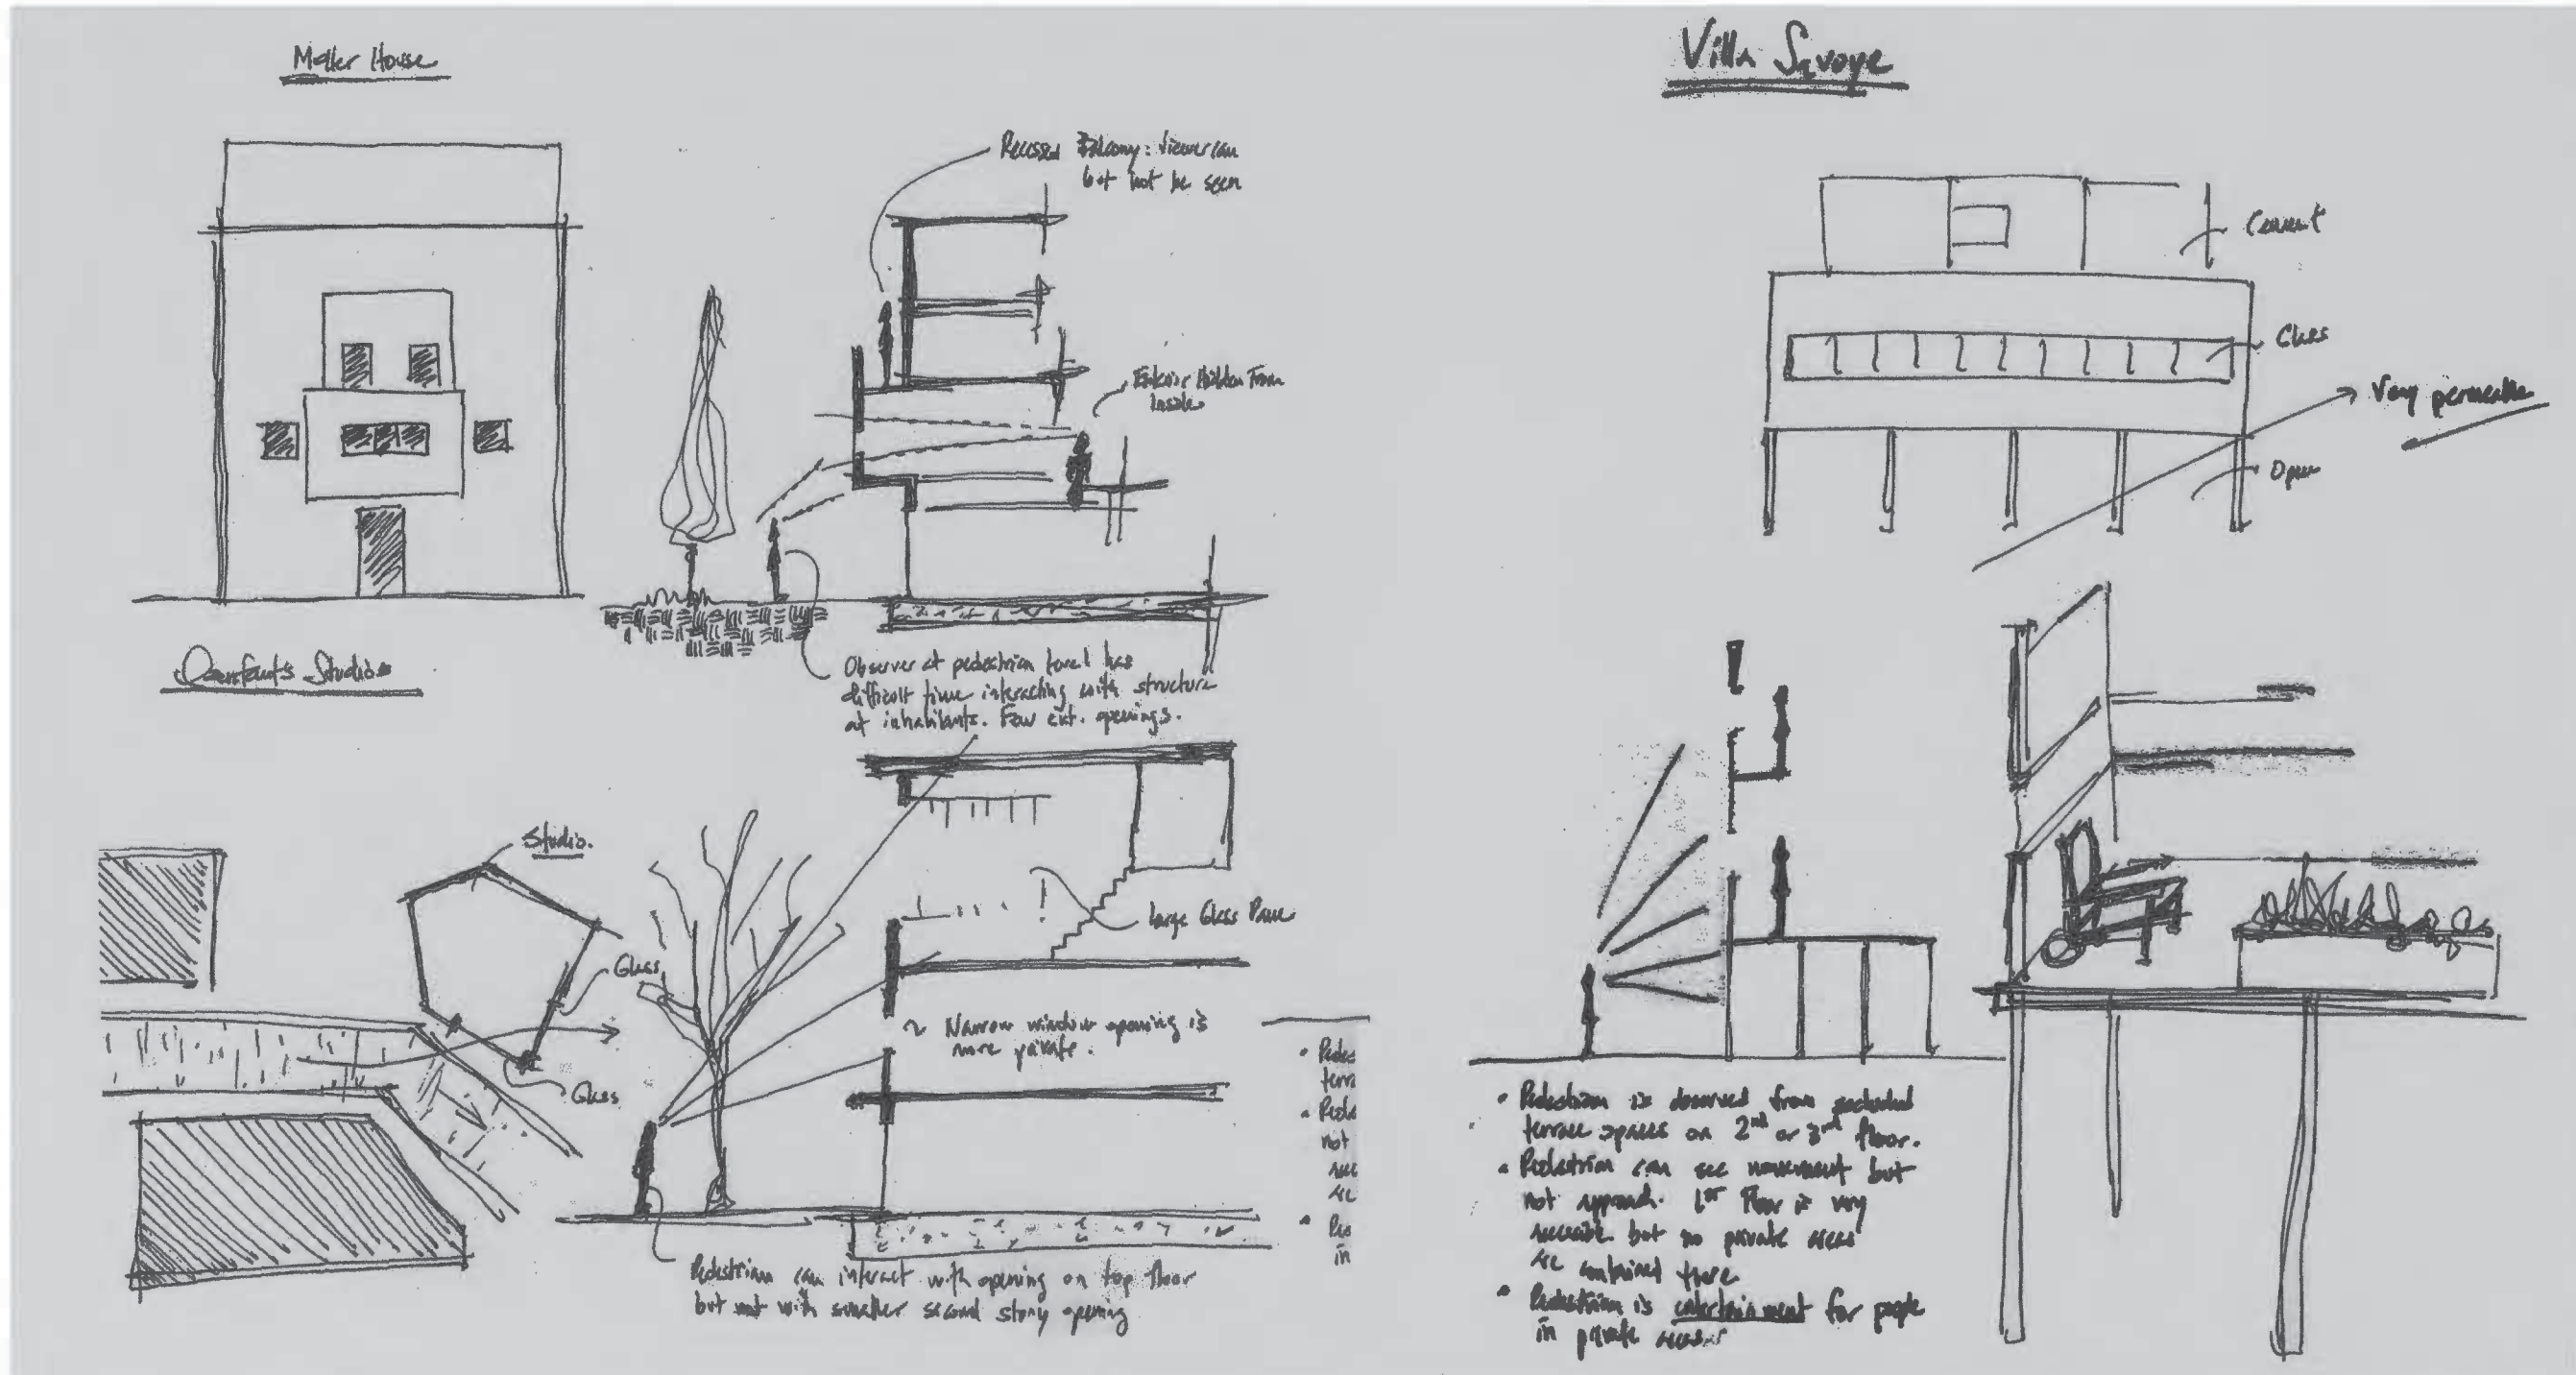 Moller House
Recessed Balcony: Viewer can
but not be seen
Exterior Hidden From
Inside
Observer at pedestrian level has
difficult time interacting with structure
at inhabitants. Few ext. openings.
Studios
Studio.
Glass
Glass
Large Glass Pane
Narrow window opening is
more private.
Pedestrian can interact with opening on top floor
but not with smaller second story opening
• Pedes
terra
• Pede
not
acc
are
• Pes
in
Villa Savoye
Cement
Glass
Very permeable
Open
• Pedestrian is observed from secluded
terrace spaces on 2nd or 3rd floor.
• Pedestrian can see movement but
not approach. 1st Floor is very
accessible but no private areas
are contained there
• Pedestrian is entertainment for people
in private areas